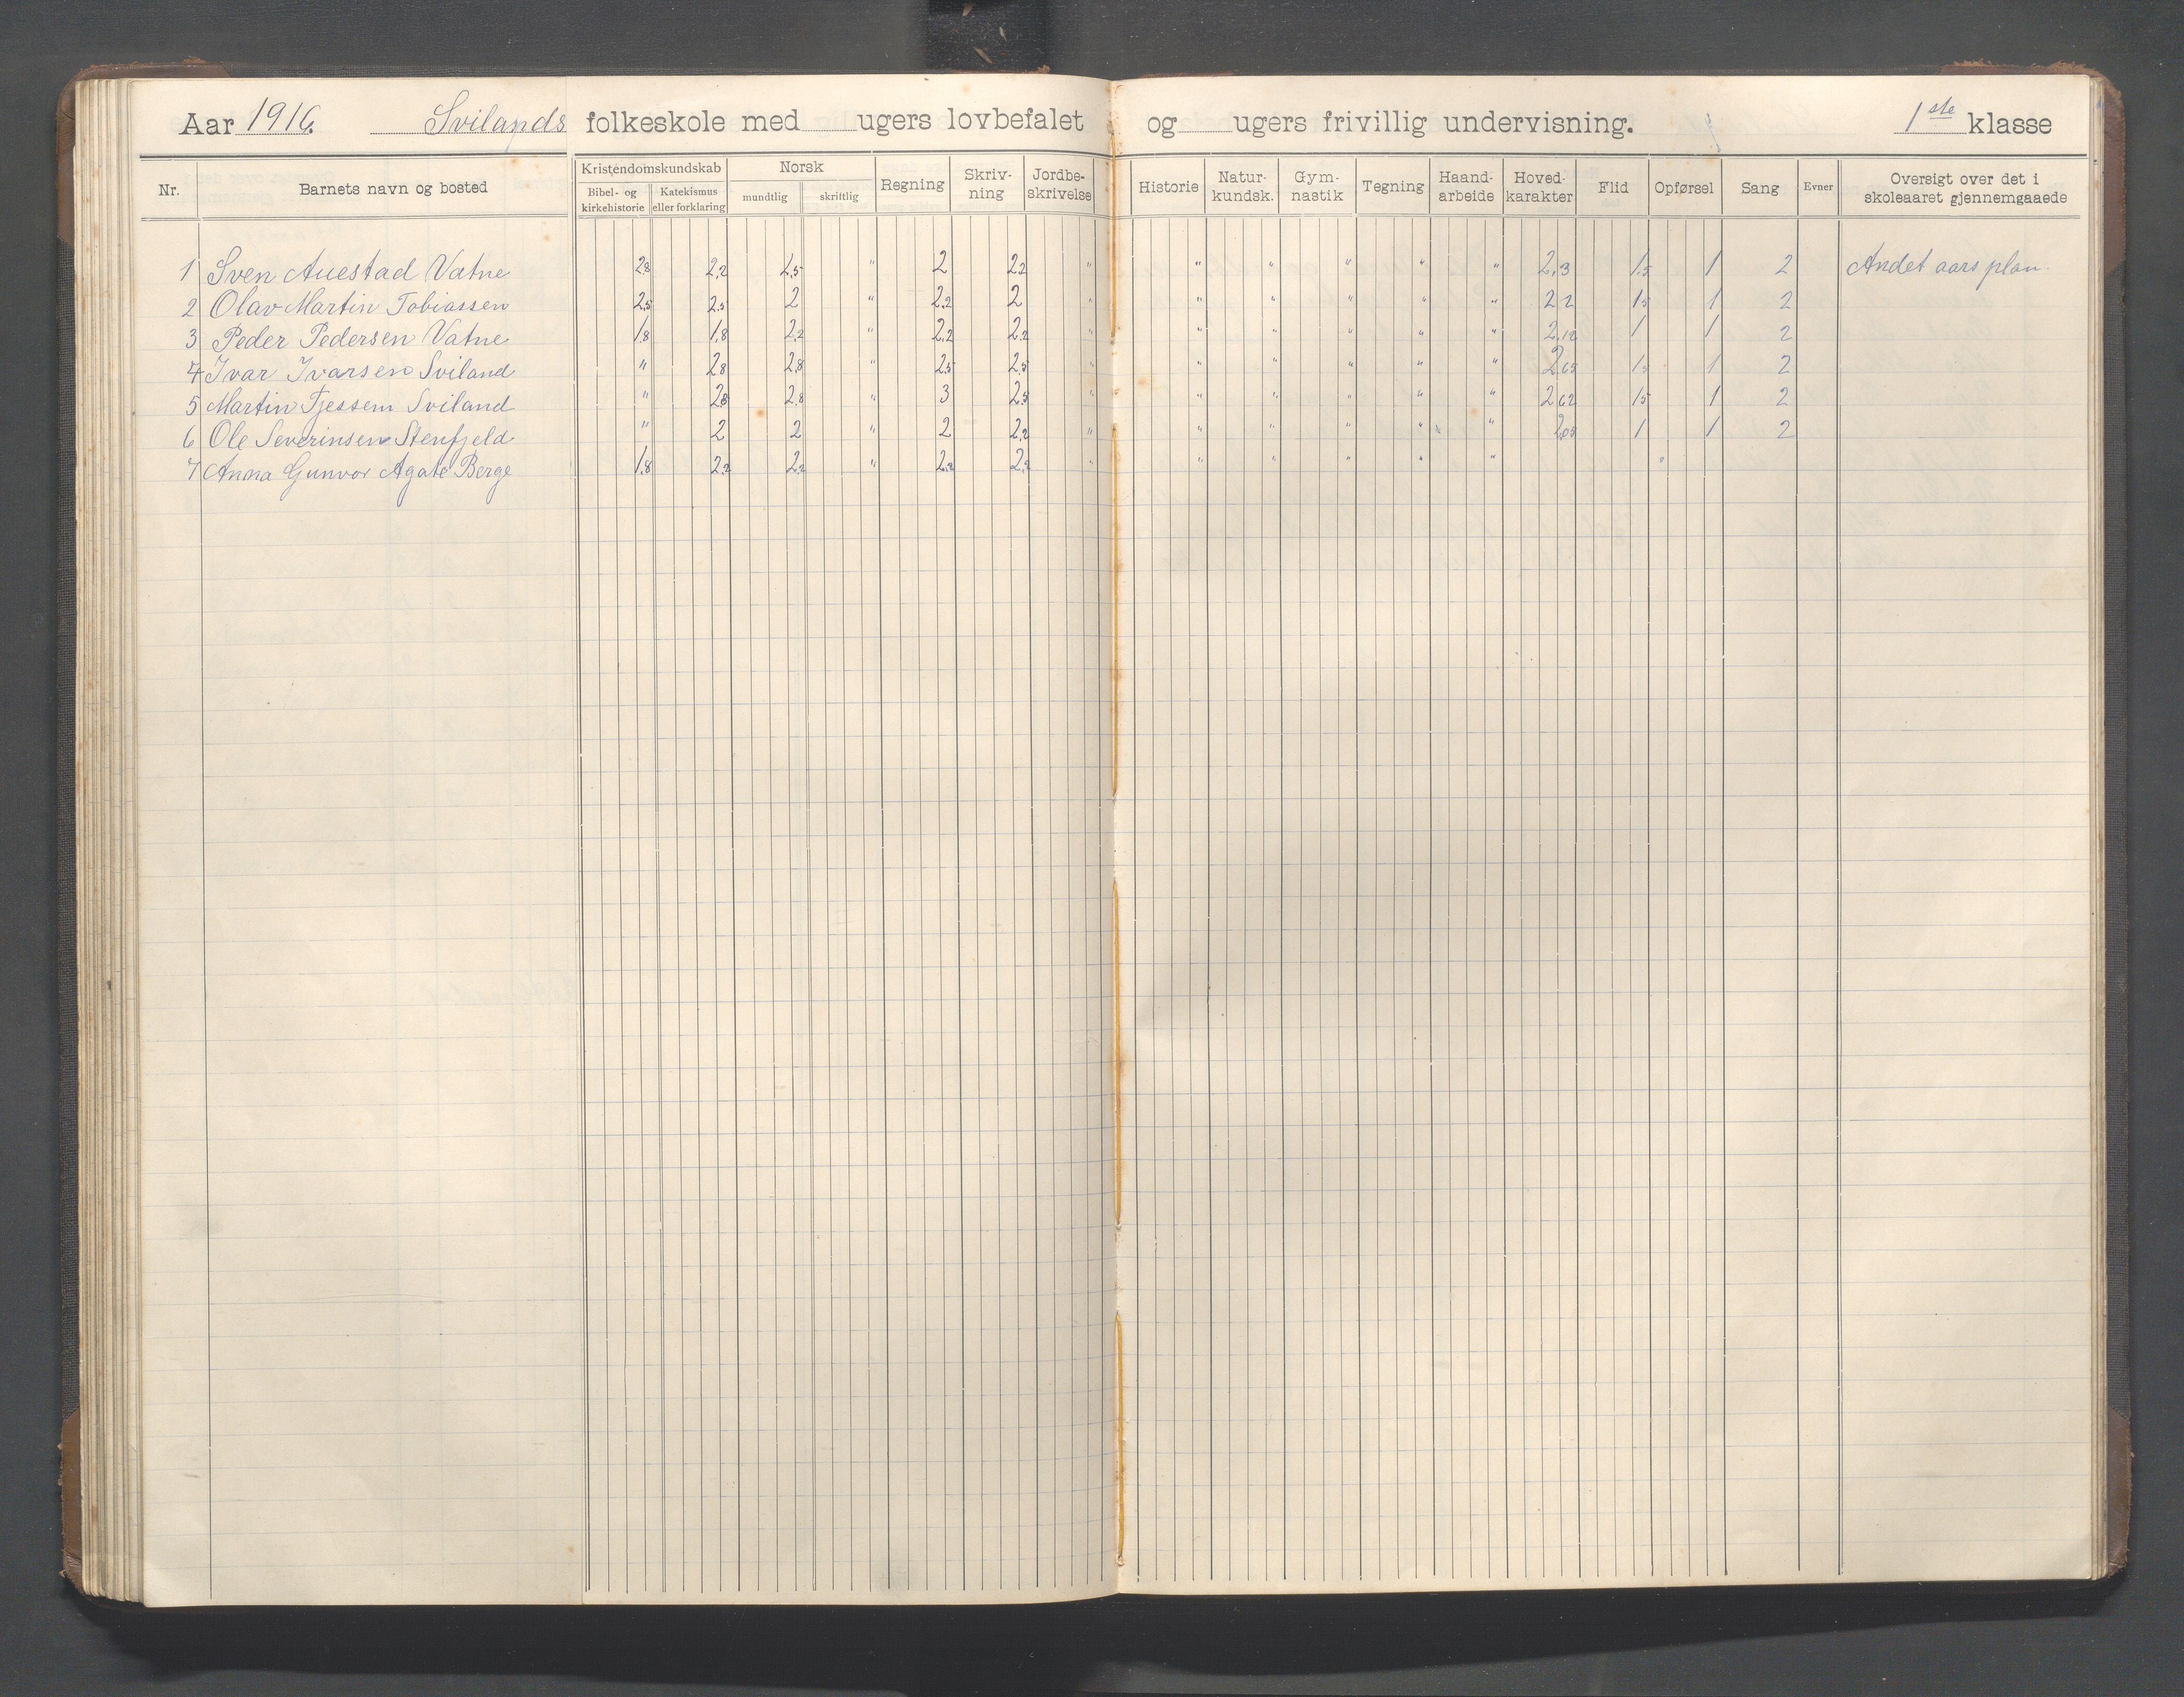 Aar 1916. Svilands folkeskole med ugers lovbefalet og ugers frivillig undervisning. 1ste klasse
Nr. Barnets navn og bosted Kristendomskundskab Bibel- og kirkehistorie Katekismus eller forklaring Norsk mundtlig skriftlig Regning Skriv-ning Jordbe-skrivelse Historie Natur-kundsk. Gym-nastik Tegning Haand-arbeide Hoved-karakter Flid Opførsel Sang Evner Oversigt over det i skoleaaret gjennemgaaede
1 Sven Auestad Vatne 2,8 2,2 2,5 " 2 2,2 " " " " " " 2,3 1,5 1 2 Andet aars plan.
2 Olav Martin Tobiassen 2,5 2,5 2 " 2,2 2 " " " " " " 2 2 1,5 1 2
3 Peder Pedersen Vatne 1,8 1,8 2,2 " 2,2 2,2 " " " " " " 2,12 1 1 2
4 Ivar Ivarsen Sviland " 2,8 2,8 " 2,5 2,5 " " " " " " 2,65 1,5 1 2
5 Martin Tjessem Sviland " 2,8 2,8 " 3 2,5 " " " " " " 2,62 1,5 1 2
6 Ole Severinsen Stenfjeld " 2 2 " 2 2,2 " " " " " " 2,05 1 1 2
7 Anna Gunvor Agate Berge 1,8 2,2 2,2 " 2,2 2,2 " " " " " "